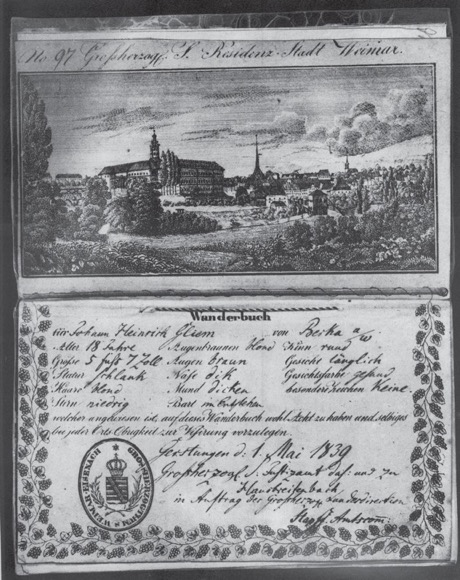 No 97 Großherzogl. S. Residenz Stadt Weimar.
Wanderbuch
für Johann Heinrich Gliem von Berka a/w
Alter 18 Jahre Augenbraunen blond Kinn rund
Größe 5 fuß 7 Zoll Augen braun Gesicht länglich
Statur schlank Nase dik Gesichtsfarbe gesund
Haare blond Mund dicken besondere Zeichen keine
Stirn niedrig Bart im Entstehen
welcher angewiesen ist, auf dieses Wanderbuch wohl Acht zu haben und selbiges
bei jeder Orts Obrigkeit zur Visirung vorzulegen.
Gerstungen d. 1. Mai 1839
Großherzogl. S. Justizamt das. und zu
Hausbreitenbach
in Auftrag der Großherzogl. Landesdirection